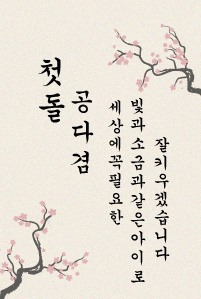 첫돌
공다겸
세상에꼭필요한
빛과소금과같은아이로
잘키우겠습니다